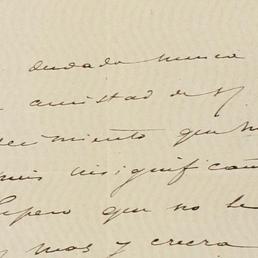 dudado nunca
amistad de
cimiento que
mis insignifican
Espero que no le
mas y creera